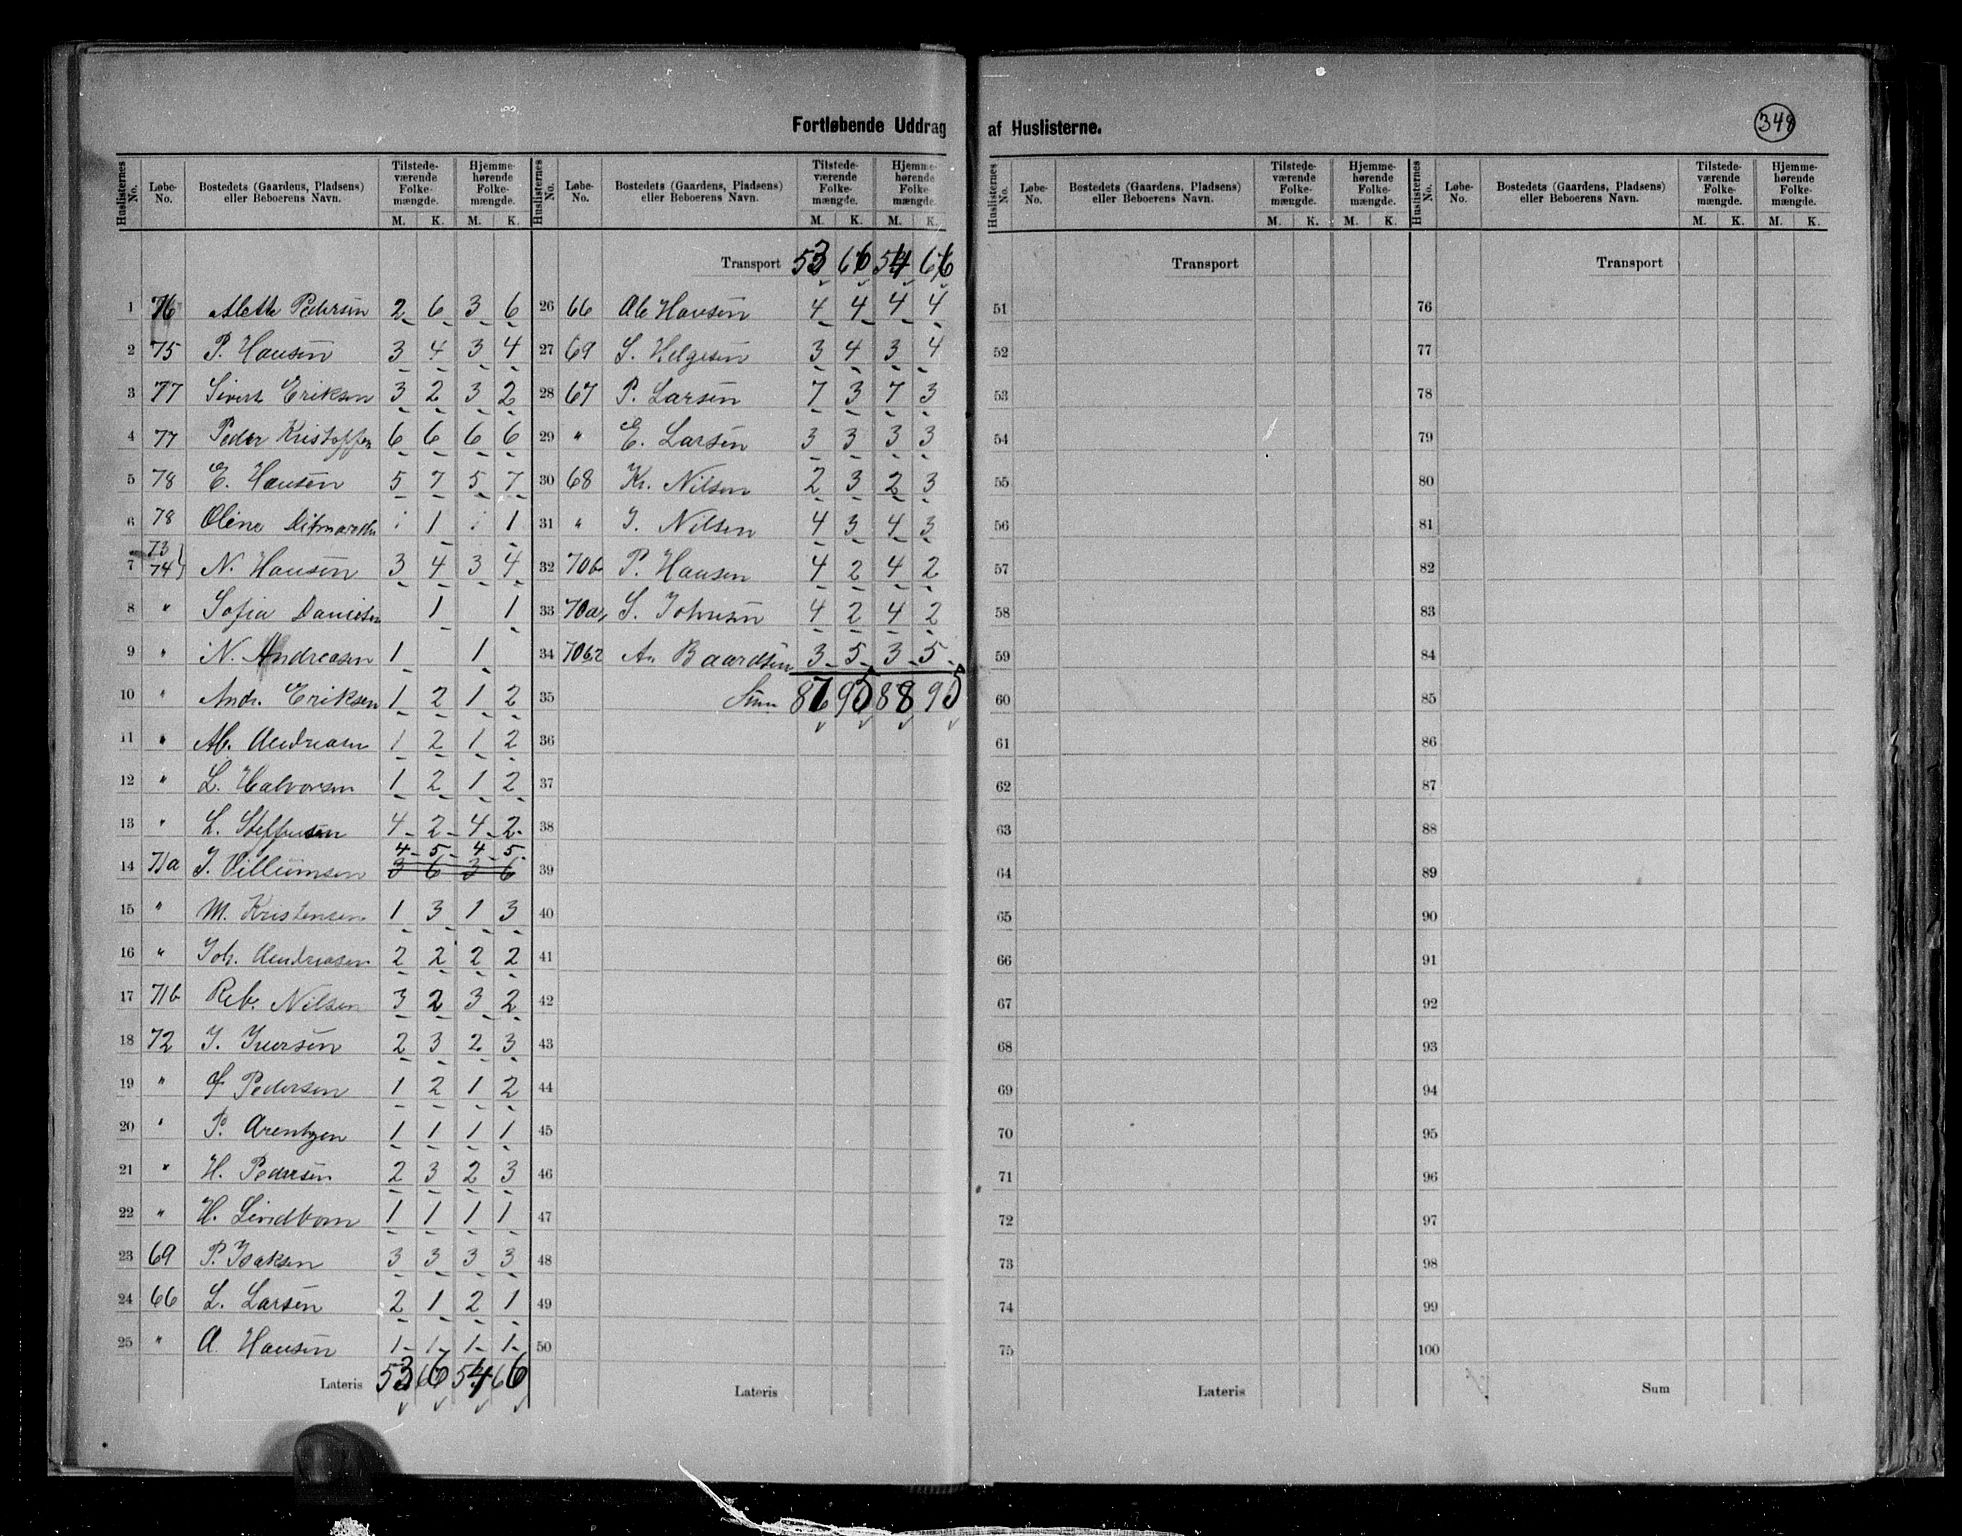 Fortløbende Uddrag af Huslisterne.
348
Huslisternes No. Løbe-No. Bostedets (Gaardens, Pladsens) eller Beboerens Navn. Tilstedeværende Folkemængde. M. K. Hjemmehørende Folkemængde. M. K.
1 76 Alette Pedersen 2 6 3 6
2 75 P. Hansen 3 4 3 4
3 77 Sivert Eriksen 3 2 3 2
4 77 Peder Kristoffer 6 6 6 6
5 78 E. Hansen 5 7 5 7
6 78 Oline 1 1
7 73 74 N. Hansen 3 4 3 4
8 " Sofia Danielsen 1 1
9 " N. Andreasen 1 1
10 " Andr. Eriksen 1 2 1 2
11 " Ab. Andreasen 1 2 1 2
12 " L. Halvorsen 1 2 1 2
13 " L. Steffensen 4 2 4 2
4 5 4 5
14 71a J. Villumsen 3 6 3 6
15 " M. Kristensen 1 3 1 3
16 " Joh. Andreasen 2 2 2 2
17 71b Reb. Nilsen 3 2 3 2
18 72 J. Iversen 2 3 2 3
19 " Pedersen 1 2 1 2
20 " P. Arentzen 1 1 1 1
21 " H. Pedersen 2 3 2 3
22 " H. Lindbom 1 1 1 1
23 69 P. Isaksen 3 3 3 3
24 66 L. Larsen 2 1 2 1
25 " A. Hansen 1 1 1 1
Lateris 53 66 54 66
Huslisternes No. Løbe-No. Bostedets (Gaardens, Pladsens) eller Beboerens Navn. Tilstedeværende Folkemængde. M. K. Hjemmehørende Folkemængde. M. K.
Transport 53 66 54 66
26 66 Ab Hansen 4 4 4 4
27 69 S. Helgesen 3 4 3 4
28 67 P. Larsen 7 3 7 3
29 " E. Larsen 3 3 3 3
30 68 Kr. Nilsen 2 3 2 3
31 " J. Nilsen 4 3 4 3
32 70b P. Hansen 4 2 4 2
33 70a S. Johnsen 4 2 4 2
34 70b2 An Baardsen 3 5 3 5
35 Sum 87 95 88 95
36
37
38
39
40
41
42
43
44
45
46
47
48
49
50
Lateris
Huslisternes No. Løbe-No. Bostedets (Gaardens, Pladsens) eller Beboerens Navn. Tilstedeværende Folkemængde. M. K. Hjemmehørende Folkemængde. M. K.
Transport
51
52
53
54
55
56
57
58
59
60
61
62
63
64
65
66
67
68
69
70
71
72
73
74
75
Lateris
Huslisternes No. Løbe-No. Bostedets (Gaardens, Pladsens) eller Beboerens Navn. Tilstedeværende Folkemængde. M. K. Hjemmehørende Folkemængde. M. K.
Transport
76
77
78
79
80
81
82
83
84
85
86
87
88
89
90
91
92
93
94
95
96
97
98
99
100
Sum